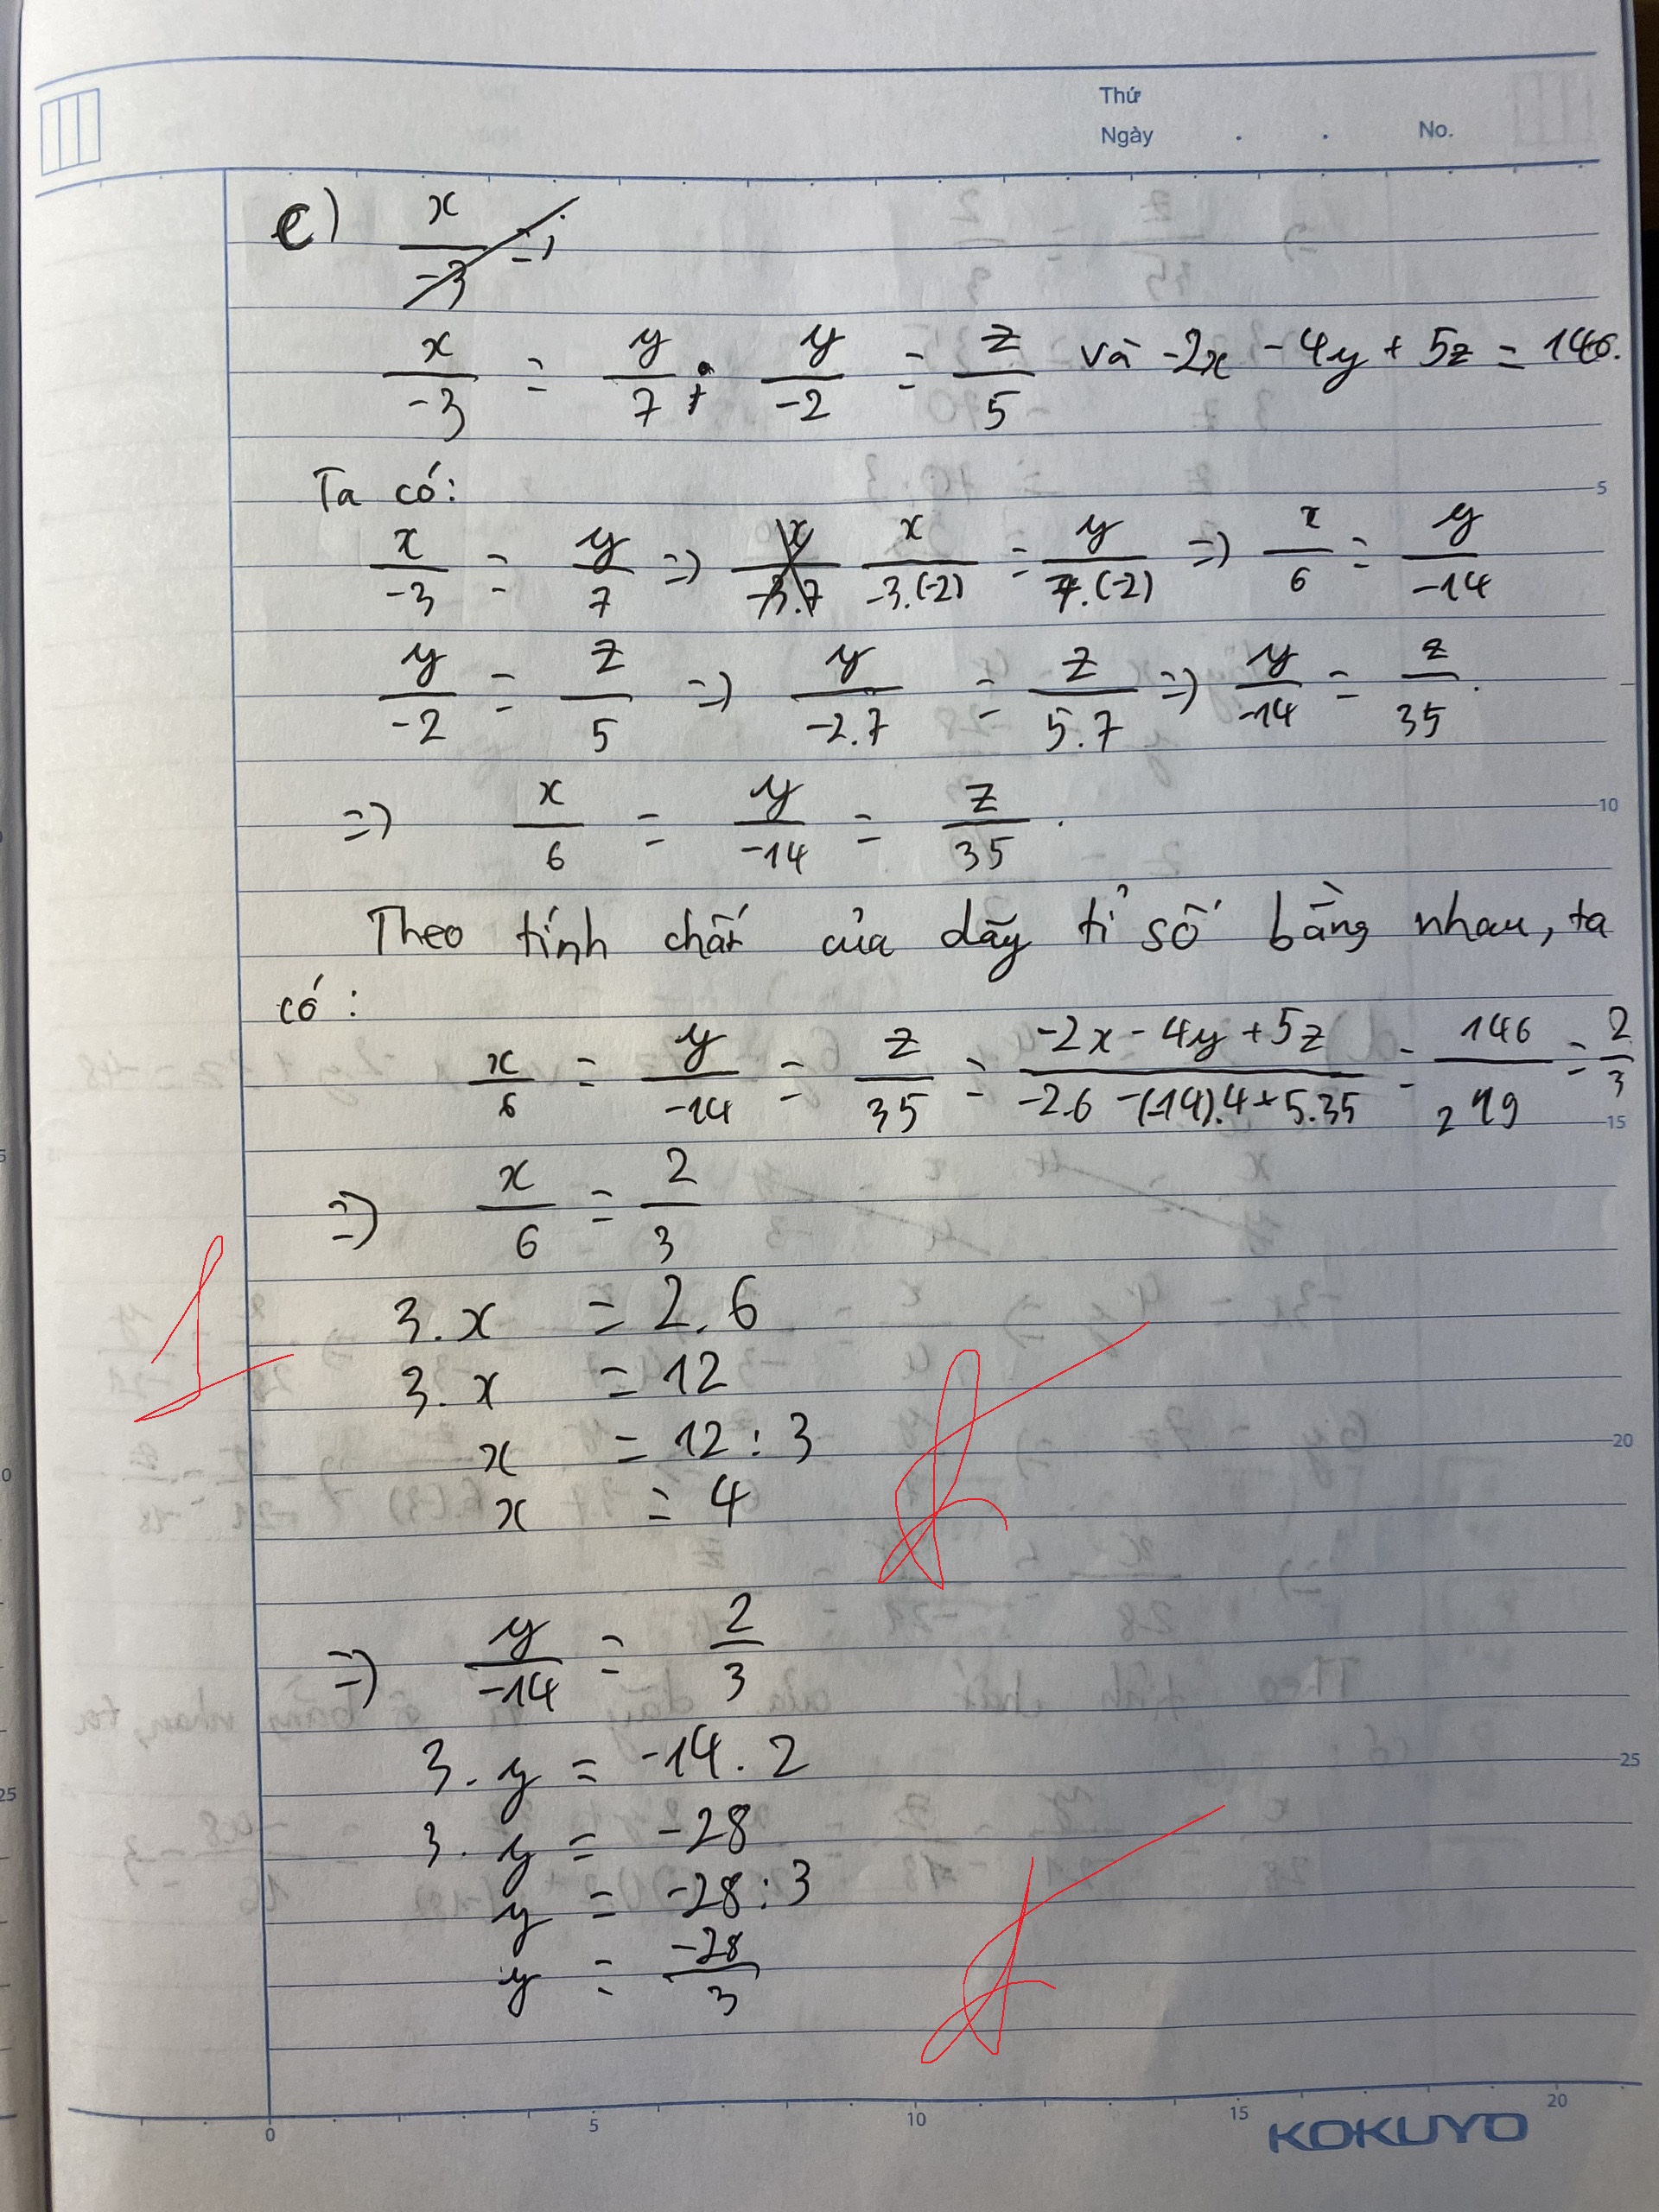 Thứ
Ngày . . No.
c) x/-3 = ;
x/-3 = y/7 ; y/-2 = z/5 và -2x - 4y + 5z = 146.
Ta có:
x/-3 = y/7 => x/-3.7 x/-3.(-2) = y/7.(-2) => x/6 = y/-14
y/-2 = z/5 => y/-2.7 = z/5.7 => y/-14 = z/35.
=> x/6 = y/-14 = z/35.
Theo tính chất của dãy tỉ số bằng nhau, ta
có:
x/6 = y/-14 = z/35 = -2x - 4y + 5z/-2.6 - (-14).4 + 5.35 = 146/219 = 2/3
=> x/6 = 2/3
3.x = 2.6
3.x = 12
x = 12 : 3
x = 4
1
=> y/-14 = 2/3
3.y = -14.2
3.y = -28
y = -28 : 3
y = -28/3
5
10
15
20
25
0 5 10 15 20
KOKUYO